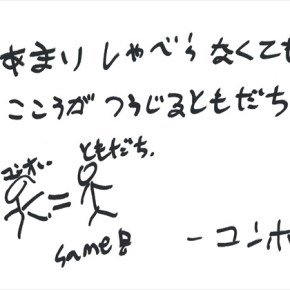 あまり しゃべらなくても
こころが つうじるともだち
ともだち.
=
same!!
- ユンホ